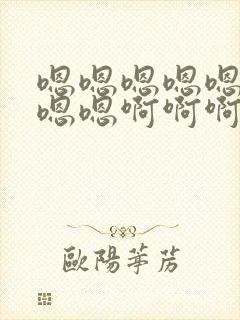 嗯嗯嗯嗯嗯
嗯嗯啊啊啊
歐陽荸苈